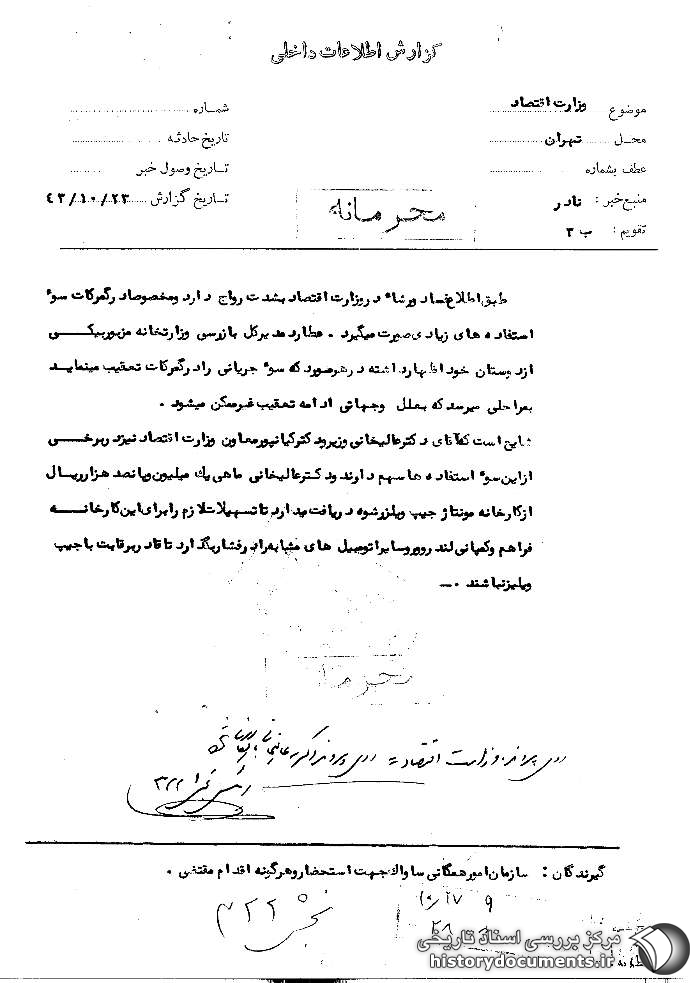 گزارش اطلاعات داخلی
موضوع وزارت اقتصاد
محل تهران
عطف بشماره
منبع خبر : نادر
تقویم : ب ۳
شماره
تاریخ حادثه
تاریخ وصول خبر
تاریخ گزارش ۴۳/۱۰/۲۳
محرمانه
طبق اطلاع فساد و رشاء در وزارت اقتصاد بشدت رواج دارد و مخصوصا در گمرکات سوء
استفاده های زیادی صورت میگیرد . عطارد مدیرکل بازرسی وزارتخانه مزبور بیکی
از دوستان خود اظهار داشته در هر صورد که سوء جریانی را در گمرکات تعقیب مینماید
بمراحلی میرسد که بعلل وجهاتی ادامه تعقیب غیرممکن میشود .
شایع است که آقای دکتر عالیخانی وزیر و دکتر کیانپور معاون وزارت اقتصاد نیز در برخی
از این سوء استفاده ها سهم دارند و دکتر عالیخانی ماهی یک میلیون و پانصد هزار ریال
از کارخانه مونتاژ جیپ ویلیز رشوه دریافت میدارد تا تسهیلات لازم را برای این کارخانه
فراهم و کمپانی لند روور و سایر اتومبیل های مشابه را در فشار بگذارد تا قادر برقابت با جیپ
ویلیز نباشند .
محرمانه
روی پرونده وزارت اقتصاد روی پرونده دکتر عالیخانی
۳۲۲
گیرندگان : سازمان امور همگانی ساواک جهت استحضار و هرگونه اقدام مقتضی .
بخش ۳۲۲
۱۰/۲۷
۹
۲۸
مرکز بررسی اسناد تاریخی
historydocuments.ir